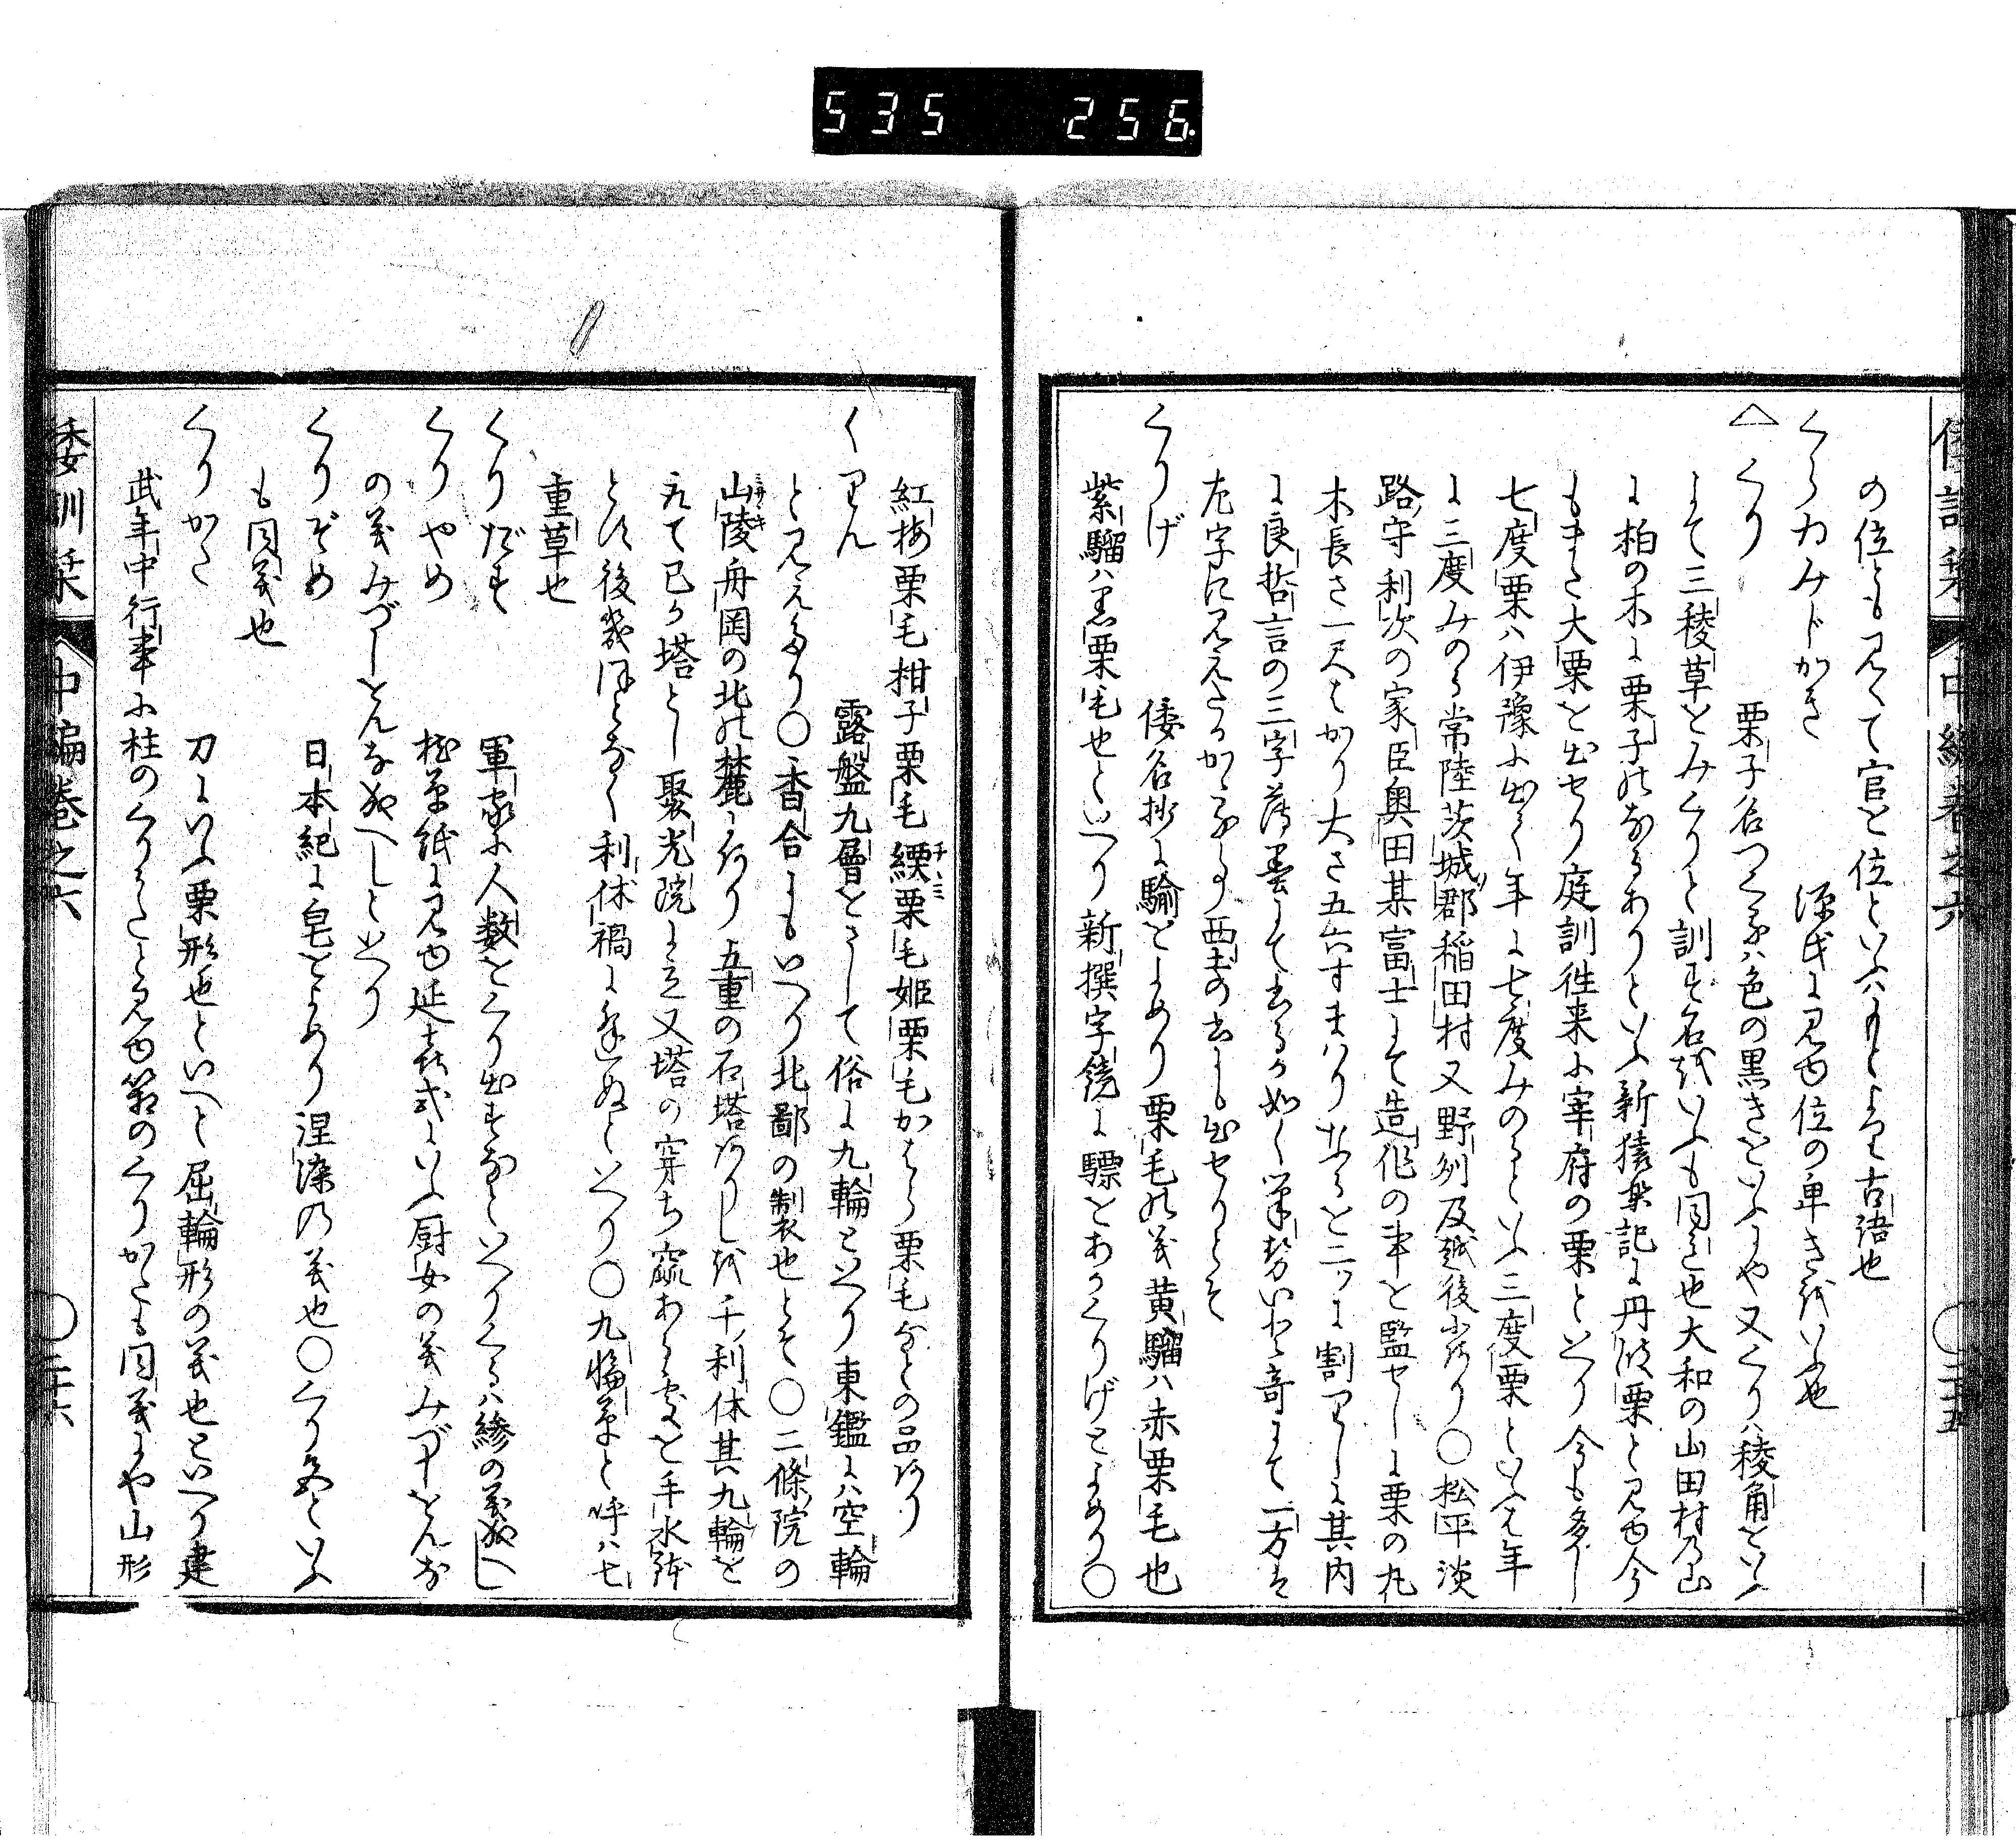 535 256.
倭訓栞 中編巻之六 ○二十五
の位とも見えて官を位といふハもとよりの古語也
くらゐみじかき 源氏に見ゆ位の卑きをいふ也
△くり 栗子名つくるハ色の黒きをいふにや又くりハ稜角をいふ
よて三稜草をみくりと訓ず石をいふも同じ也大和の山田村乃山
に柏の木に栗子のなるありといふ新猿楽記に丹波栗と見ゆ今
もまた大栗を出せり庭訓往来に宰府の栗といへり今も多し
七度栗ハ伊豫に出く年に七度みのるといふ三度栗といへるハ年
に三度みのる常陸茨城郡稲田村又野州及越後にあり○松平淡
路守利次の家臣奥田某富士よて造作の事を監せしに栗の丸
木長さ一尺はかり大さ五六寸まはりなるを二ツに割りしに其内
に良哲言の三字薄墨にて書るか如く筆勢いと奇にて一方は
左字に見えたりかゝる事西土の書にも出せりとそ
くりげ 倭名抄に騮をよめり栗毛の義黄騮ハ赤栗毛也
紫騮ハ黒栗毛也といへり新撰字鏡に驃をあかくりげとよめり○
紅梅栗毛柑子栗毛縹栗毛姫栗毛かはら栗毛なとの品あり
くりん 露盤九層をさして俗に九輪といへり東鑑にハ空輪
と見えたり○香合にもいへり北鄙の製也とそ○二條院の
山陵舟岡の北の麓にあり五重の石塔ありしを千利休其九輪を
取て已か塔とし聚光院に立又塔の穿ち窳ある處を手水鉢
とす後幾ほとなく利休禍に逢ぬといへり○九輪草と呼ハ七
重草也
くりだす 軍家に人数をくり出すなといへりくるハ縿の義なへし
くりやめ 枕草紙に見ゆ延喜式にいふ厨女の義みづしをんな
の義みづしをんななるへしといへり
くりぞめ 日本紀に皂をよめり涅染乃義也○くり色といふ
も同義也
くりかた 刀にいふ栗形也といへと屈輪形の義也といへり建
武年中行事に柱のくりかたと見ゆ筯のくりかたも同義にや山形
倭訓栞 中編巻之六 ○二十六